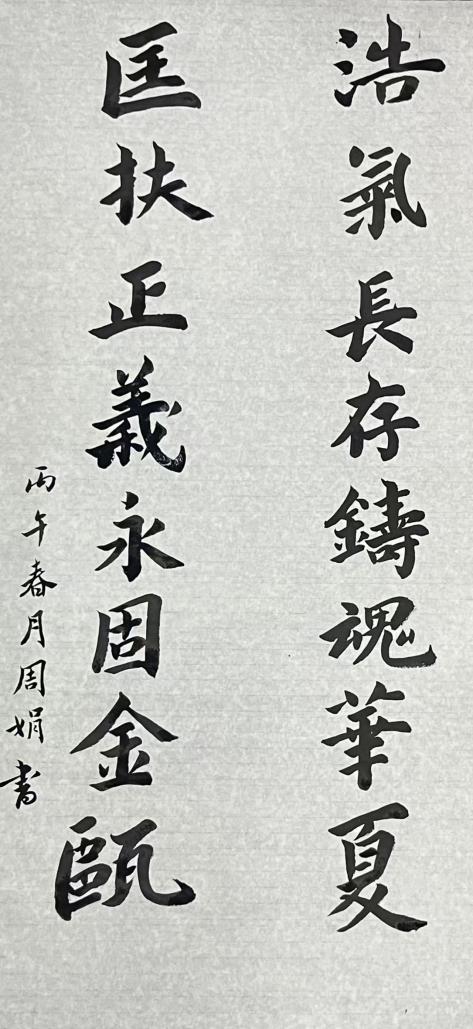 浩氣長存鑄魂華夏
匡扶正義永固金甌
丙午春月周娟書